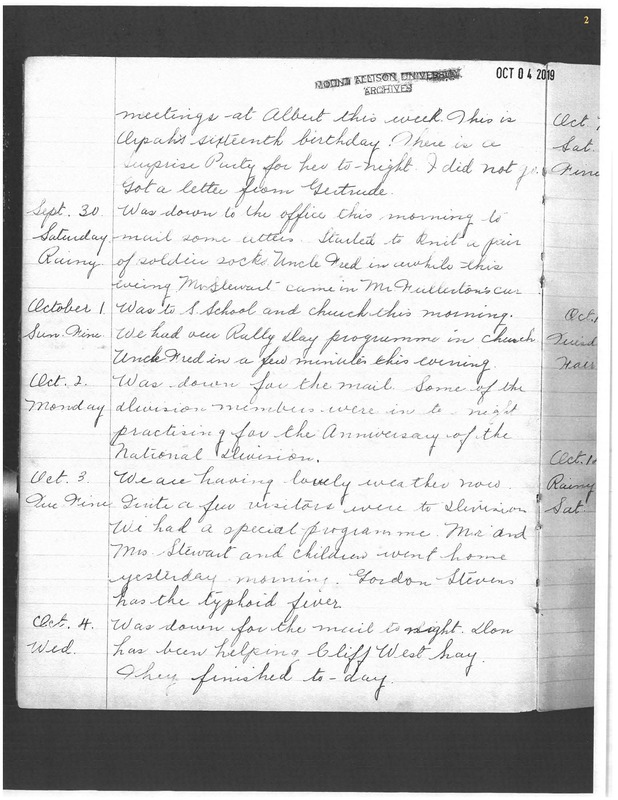 2
MOUNT ALLISON UNIVERSITY
ARCHIVES
OCT 04 2019
meetings at Albert this week. This is
Orpah's sixteenth birthday. There is a
Surprise Party for her to-night. I did not go.
Got a letter from Gertrude.
Sept. 30 Was down to the office this morning to
Saturday mail some letters. Started to knit a pair
Rainy of soldier socks. Uncle Fred in awhile this
evening Mr Stewart came in Mr Fullerton's car
October 1 Was to S. School and church this morning.
Sun. Fine We had our Rally day programme in church
Uncle Fred in a few minutes this evening.
Oct. 2. Was down for the mail. Some of the
Monday division members were in to-night
practising for the Anniversary of the
National Division.
Oct. 3. We are having lovely weather now.
Tue Fine Quite a few visitors were to Division
We had a special programme. Mr and
Mrs. Stewart and children went home
yesterday morning. Gordon Stevens
has the typhoid fever.
Oct. 4. Was down for the mail to night. Don
Wed. has been helping Cliff West hay.
They finished to-day.
Oct. 7
Sat.
Fine
Oct. 1
Tuesd
Fair
Oct. 1
Rainy
Sat